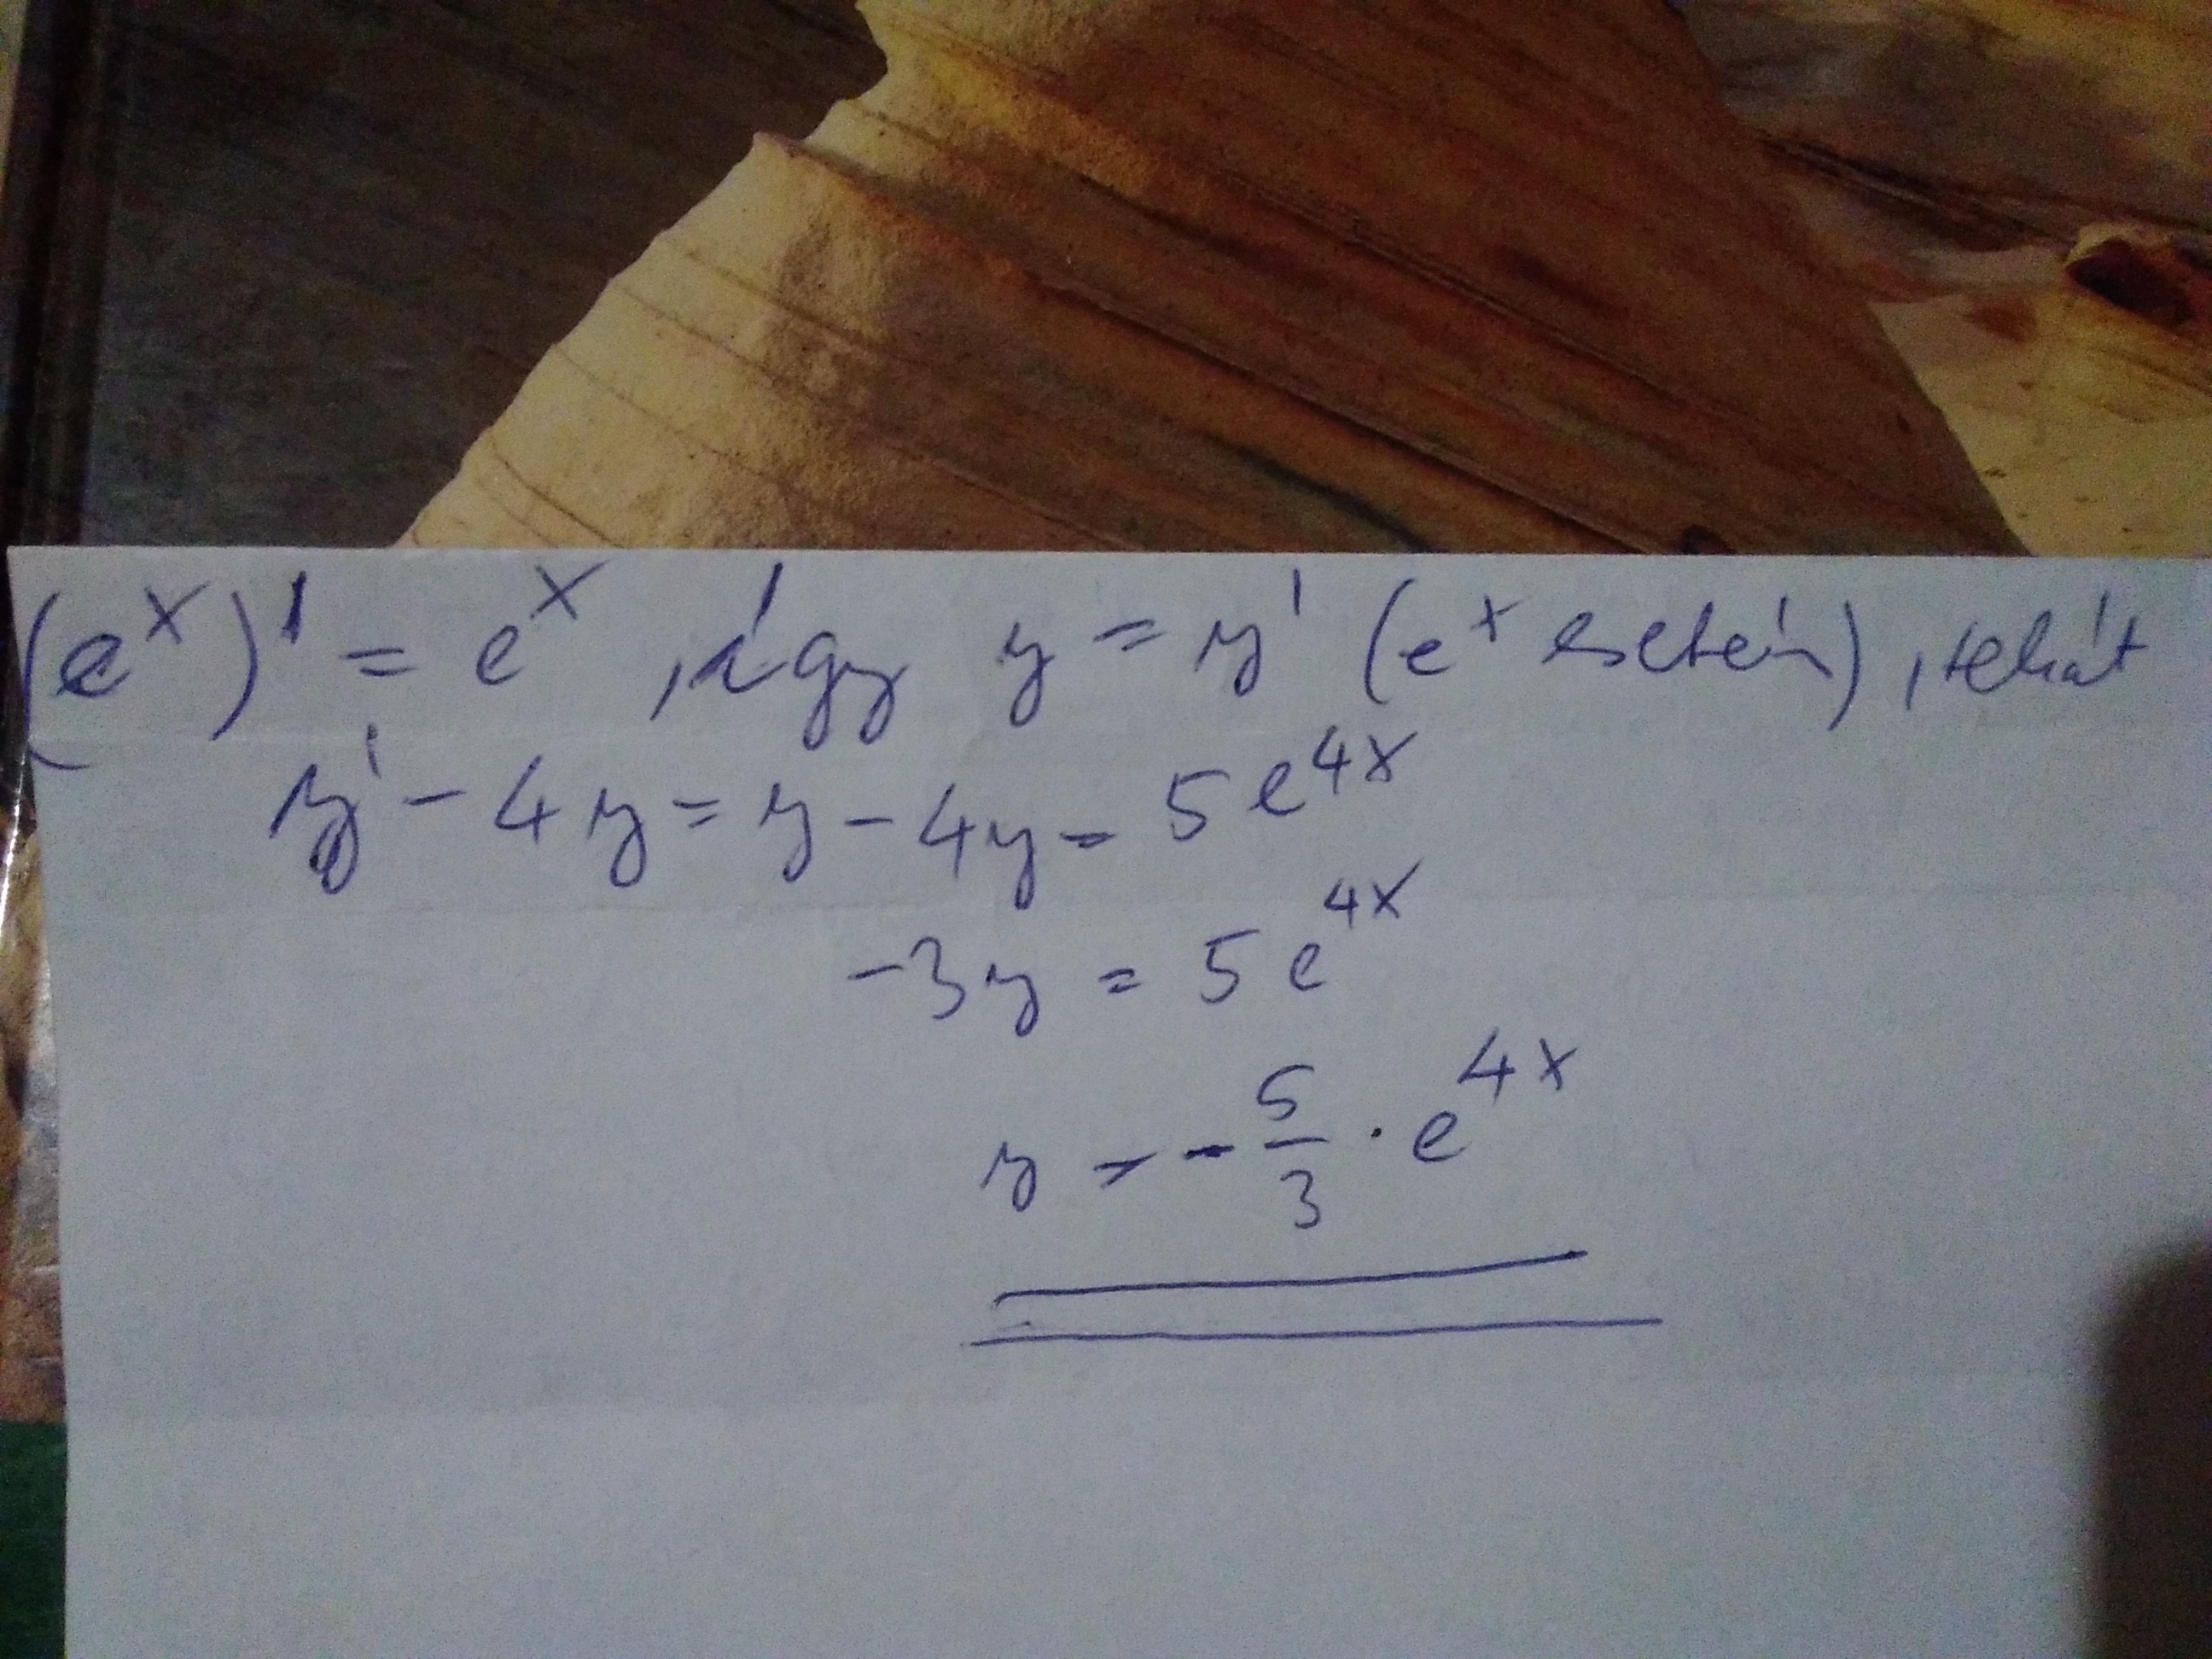 (e^x)' = e^x, így y = y' (e^x esetén), tehát
y' - 4y = y - 4y = 5e^4x
-3y = 5e^4x
y = -5/3 · e^4x